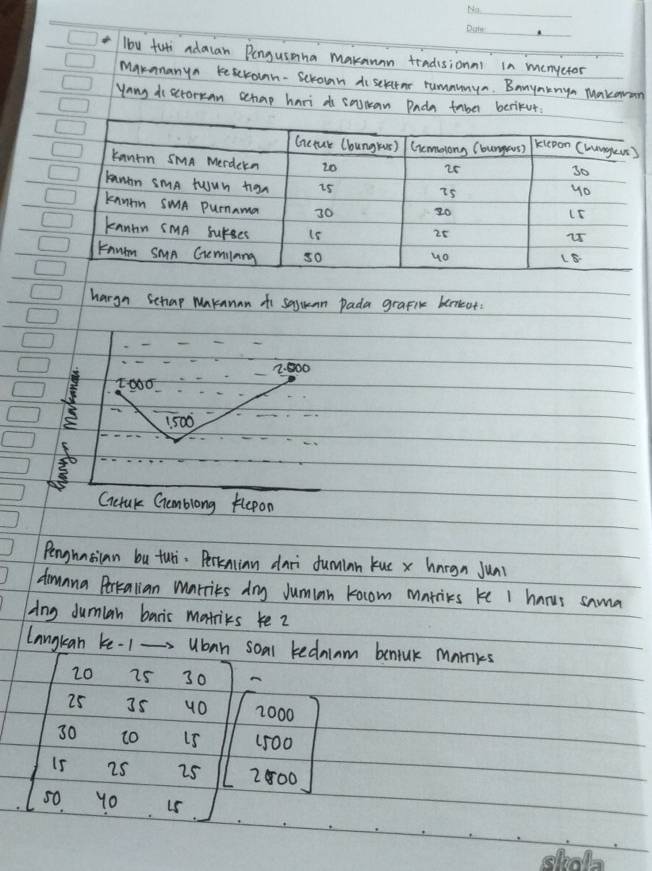 No.
Date:
* Ibu tuti adalah Pengusaha Makanan tradisional ia menyetor
Makananya kesekolah-sekolah disekitar rumahnya. Banyaknya Makanan
yang disetorkan setiap hari di sajikan Pada tabel berikut:
Getuk (bungkus) Gemblong (bungkus) klepon (bungkus)
kantin SMA Merdeka 20 25 30
kantin SMA tujuh tiga 25 35 40
kantin SMA Purnama 30 20 15
kantin SMA Sukses 15 25 25
kantin SMA Gemilang 50 40 15
harga setiap makanan di sajikan pada grafik berikut:
harga makanan
2.000
1.500
2.500
Getuk Gemblong klepon
Penghasilan bu tuti = Perkalian dari Jumlah kue x harga Jual
dimana Perkalian Matriks dng Jumlah kolom Matriks ke 1 harus sama
dng Jumlah baris Matriks ke 2
Langkah ke-1 → ubah soal kedalam bentuk Matriks
20 25 30
25 35 40 2000
30 20 15 1500
15 25 25 2500
50 40 15
skola